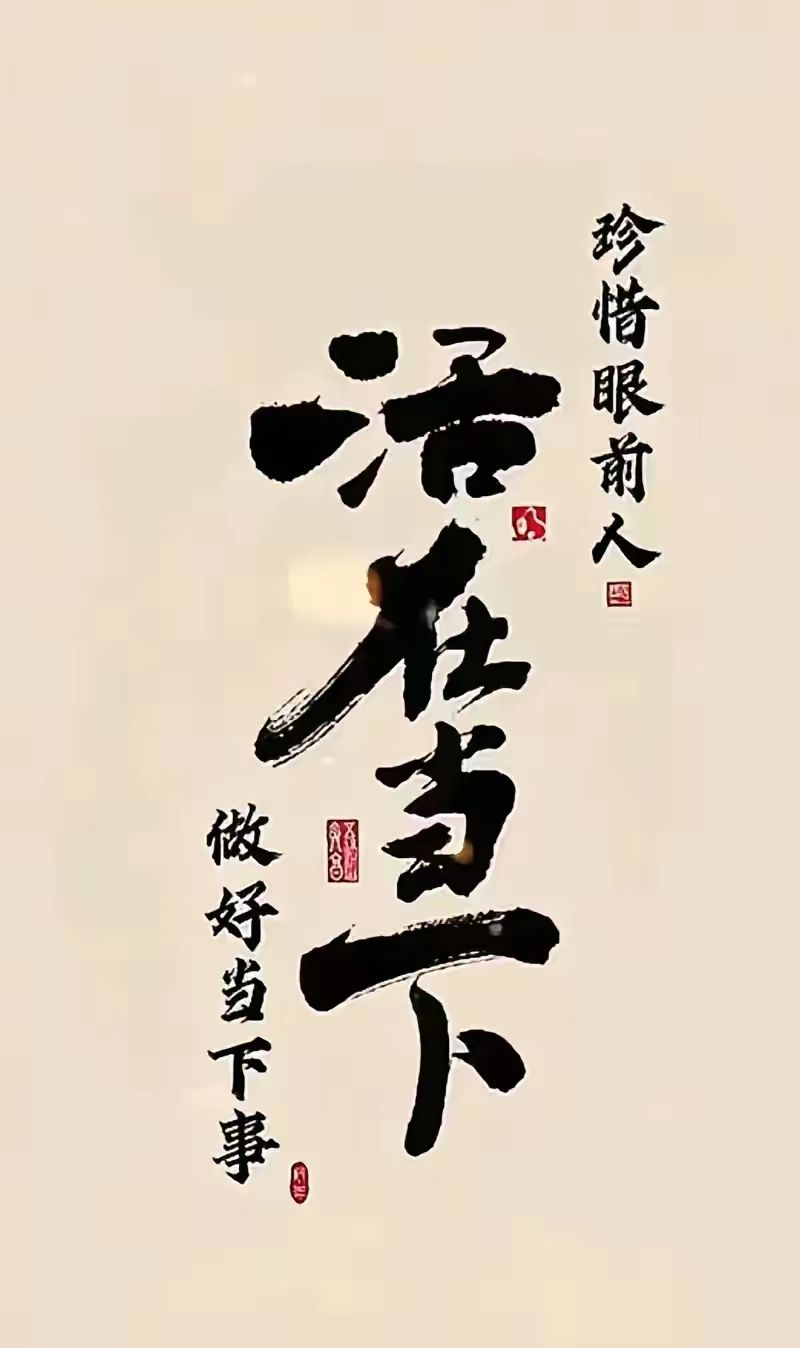 珍惜眼前人
活在当下
做好当下事